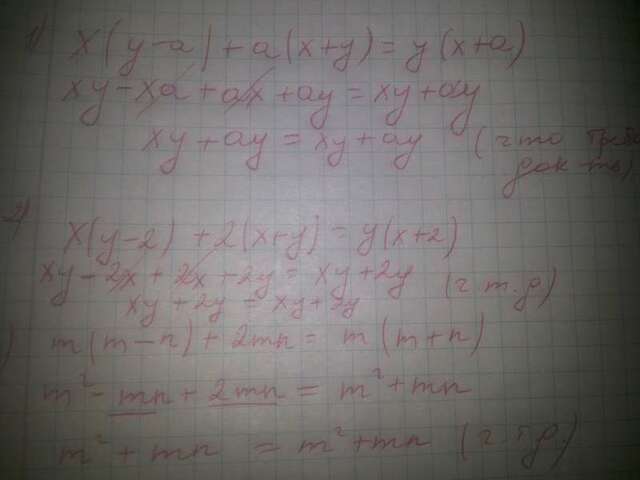 1) x(y-a)+a(x+y)=y(x+a)
xy-xa+ax+ay=xy+ay
xy+ay=xy+ay (что
док-ть)
2) x(y-2)+2(x+y)=y(x+2)
xy-2x+2x+2y=xy+2y (ч т.д)
xy+2y=xy+2y
) m(m-n)+2mn=m(m+n)
m²-mn+2mn=m²+mn
m²+mn=m²+mn (ч т.д.)